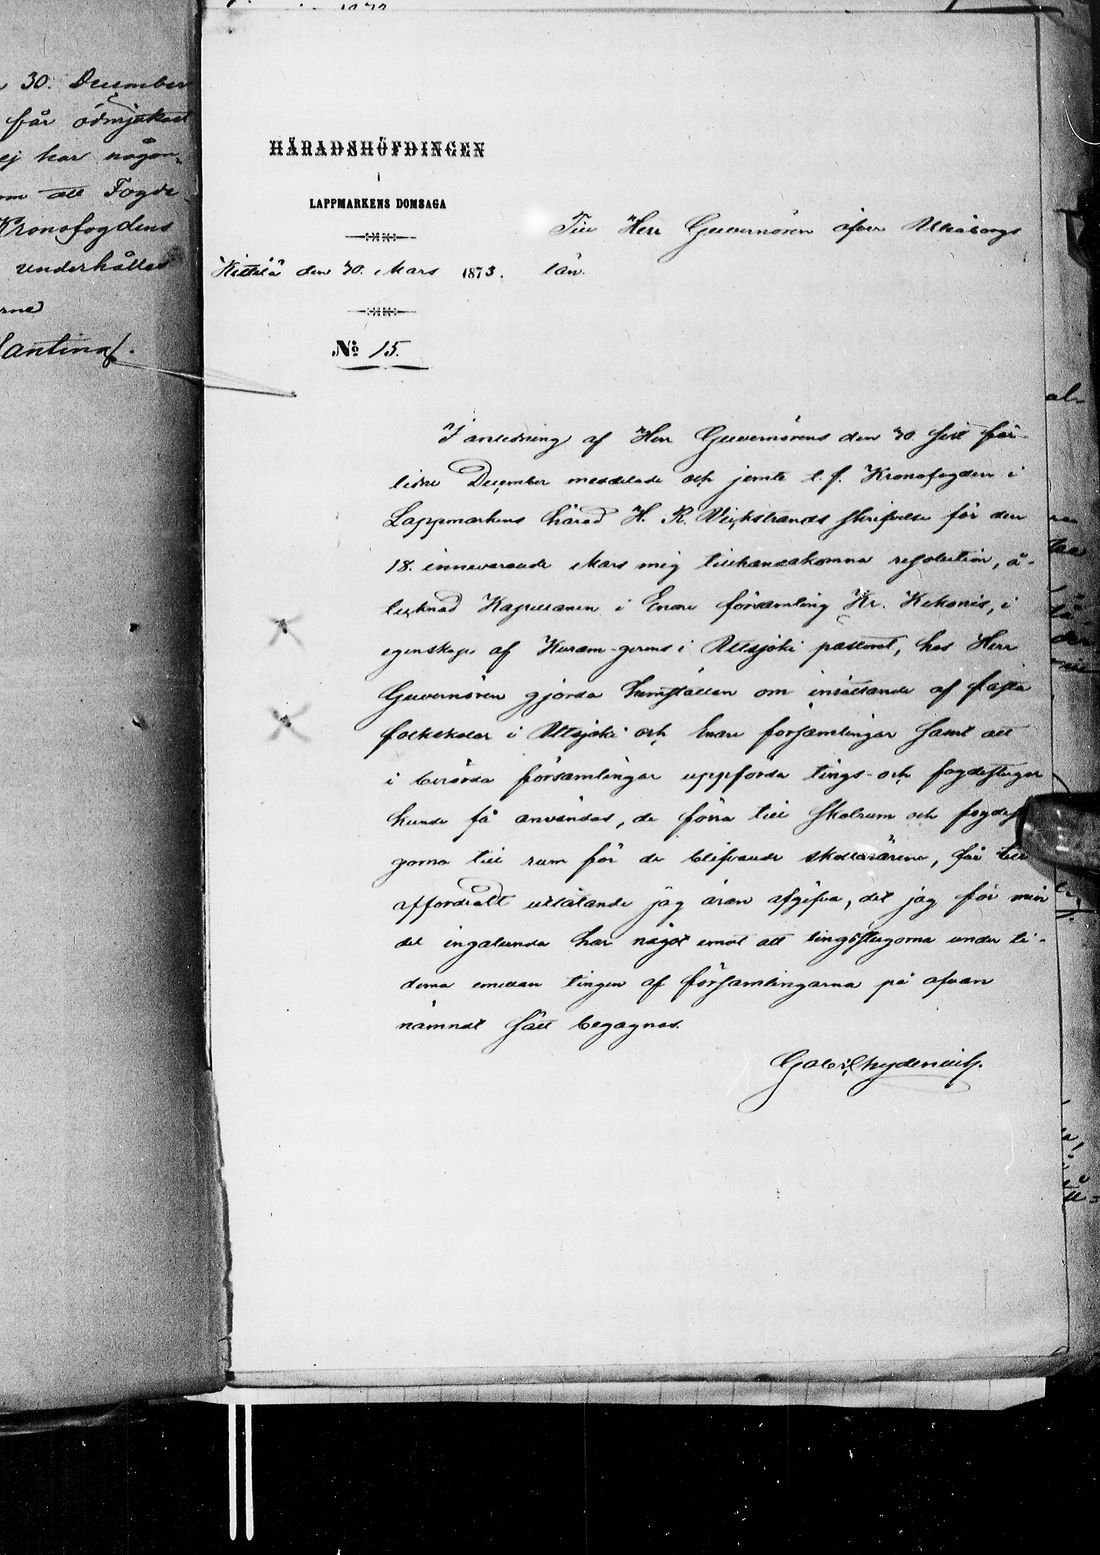 30. December
får ödmjukast
ej har någon-
om att Fogde-
Kronofogdens
underhållas
HÄRADSHÖFDINGEN
i
LAPPMARKENS DOMSAGA
Till Herr Guvernören öfver Uleåborgs
län.
Kittilä den 30. Mars 1873.
No 15.
I anledning af Herr Guvernörens den 30 sist för-
lidne December meddelade och jemte t. f. Kronofogden i
Lappmarkens härad H. R. Wickstrands skrifvelse för den
18. innevarande Mars mig tillhandakomna resolution, å-
tecknad Kapellanen i Enare församling Kr. Kekonis, i
egenskap af i Utsjoki pastorat, hos Herr
Guvernören gjorda hemställan om inrättande af fasta
folkskolor i Utsjoki och Enare församlingar samt att
i berörda församlingar uppförda tings- och fogdestugor
kunde få användas, de förra till skolrum och fogdest
gorna till rum för de blifvande skollärarena, får
affordradt utlåtande jag äran afgifva, det jag för min
del ingalunda har något emot att tingsstugorna under ti-
derna emellan tingen af församlingarna på ofvan
nämndt sätt begagnas.
Gabr. Chydenius.